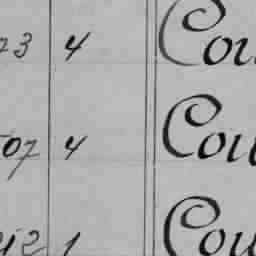 23 4 Cou
507 4 Cou
42 1 Cou